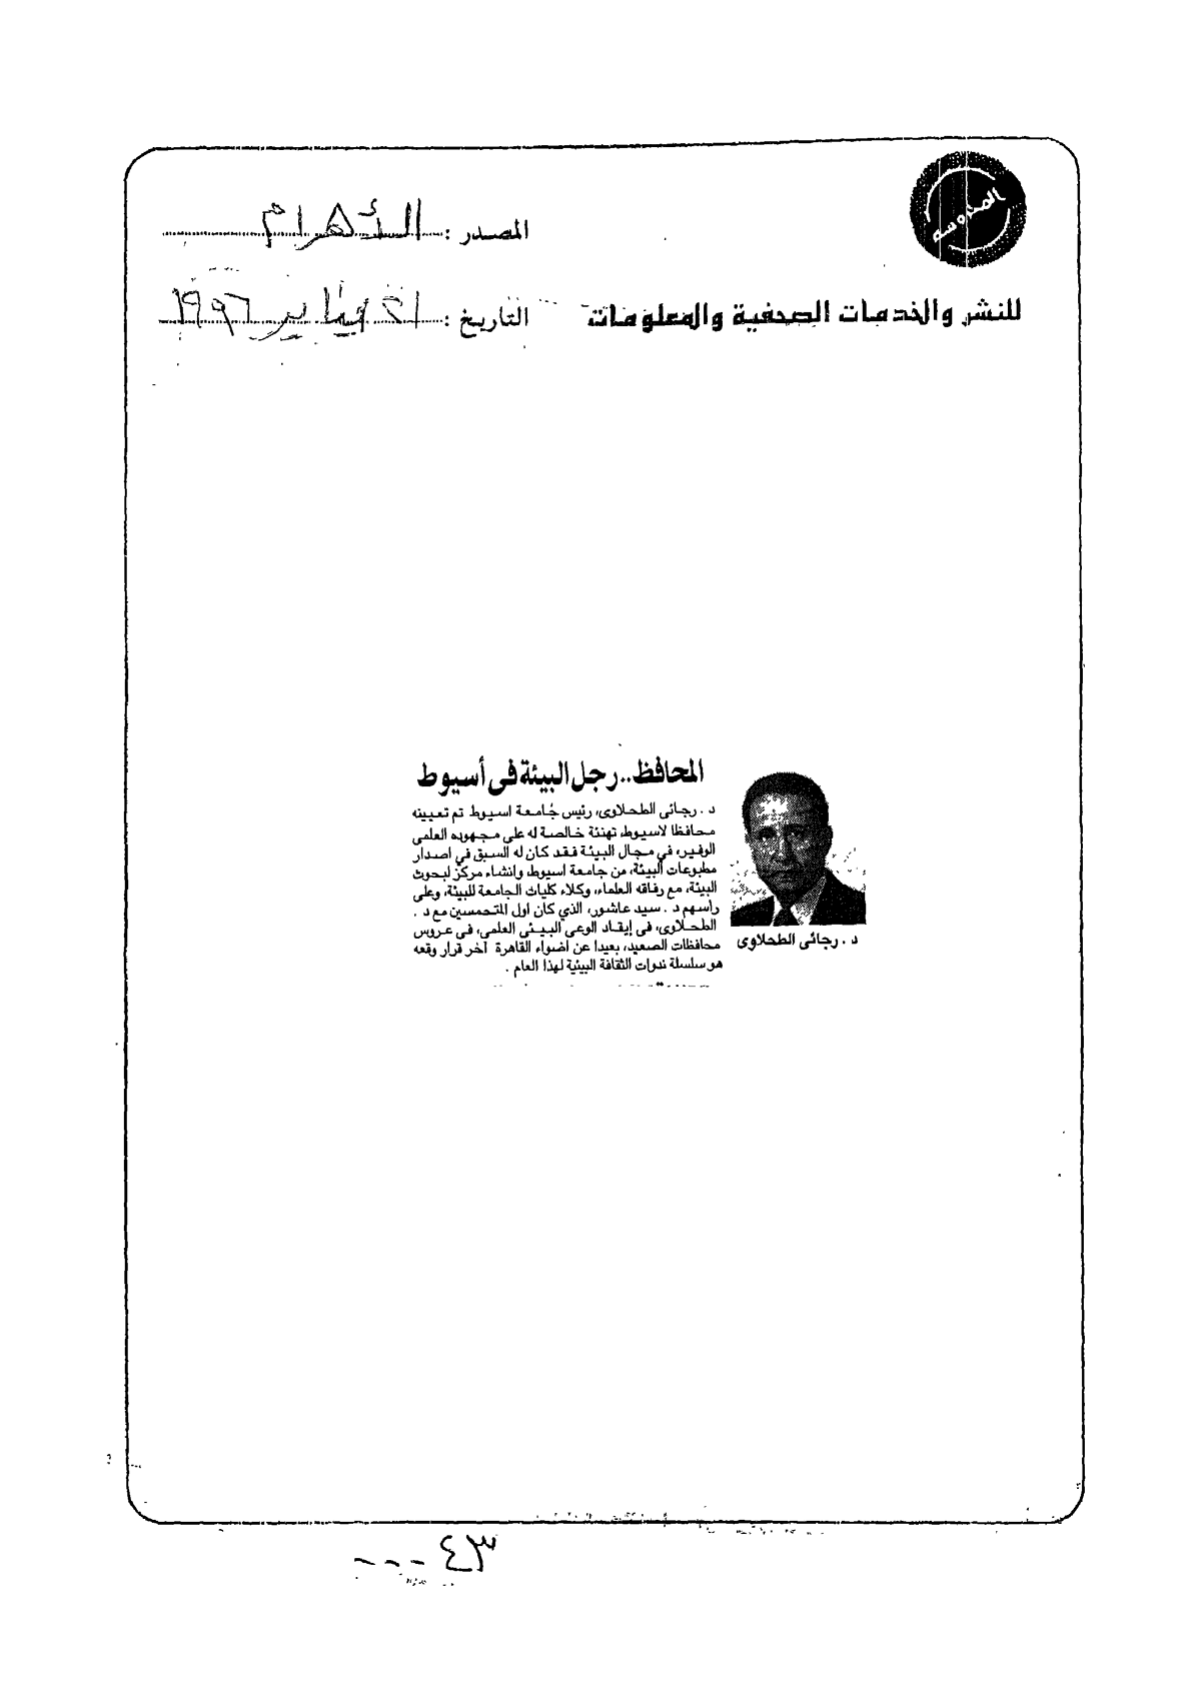 المحروسه
المصدر : الأهرام
للنشر والخدمات الصحفية والمعلومات
التاريخ : يناير ١٩٩٦
المحافظ.. رجل البيئة فى أسيوط
د . رجائى الطحلاوى، رئيس جامعة اسيوط تم تعيينه
محافظا لاسيوط، تهنئة خالصة له على مجهوده العلمى
الوفير، في مجال البيئة فقد كان له السبق في اصدار
مطبوعات البيئة، من جامعة اسيوط، وانشاء مركز لبحوث
البيئة، مع رفاقه العلماء، وكلاء كليات الجامعة للبيئة، وعلى
راسهم د . سيد عاشور، الذي كان اول المتحمسين مع د .
الطحلاوى، فى إيقاد الوعى البيئى العلمى، فى عروس
محافظات الصعيد، بعيدا عن اضواء القاهرة آخر قرار وقعه
هو سلسلة ندوات الثقافة البيئية لهذا العام .
د . رجائى الطحلاوى
٤٣ ---